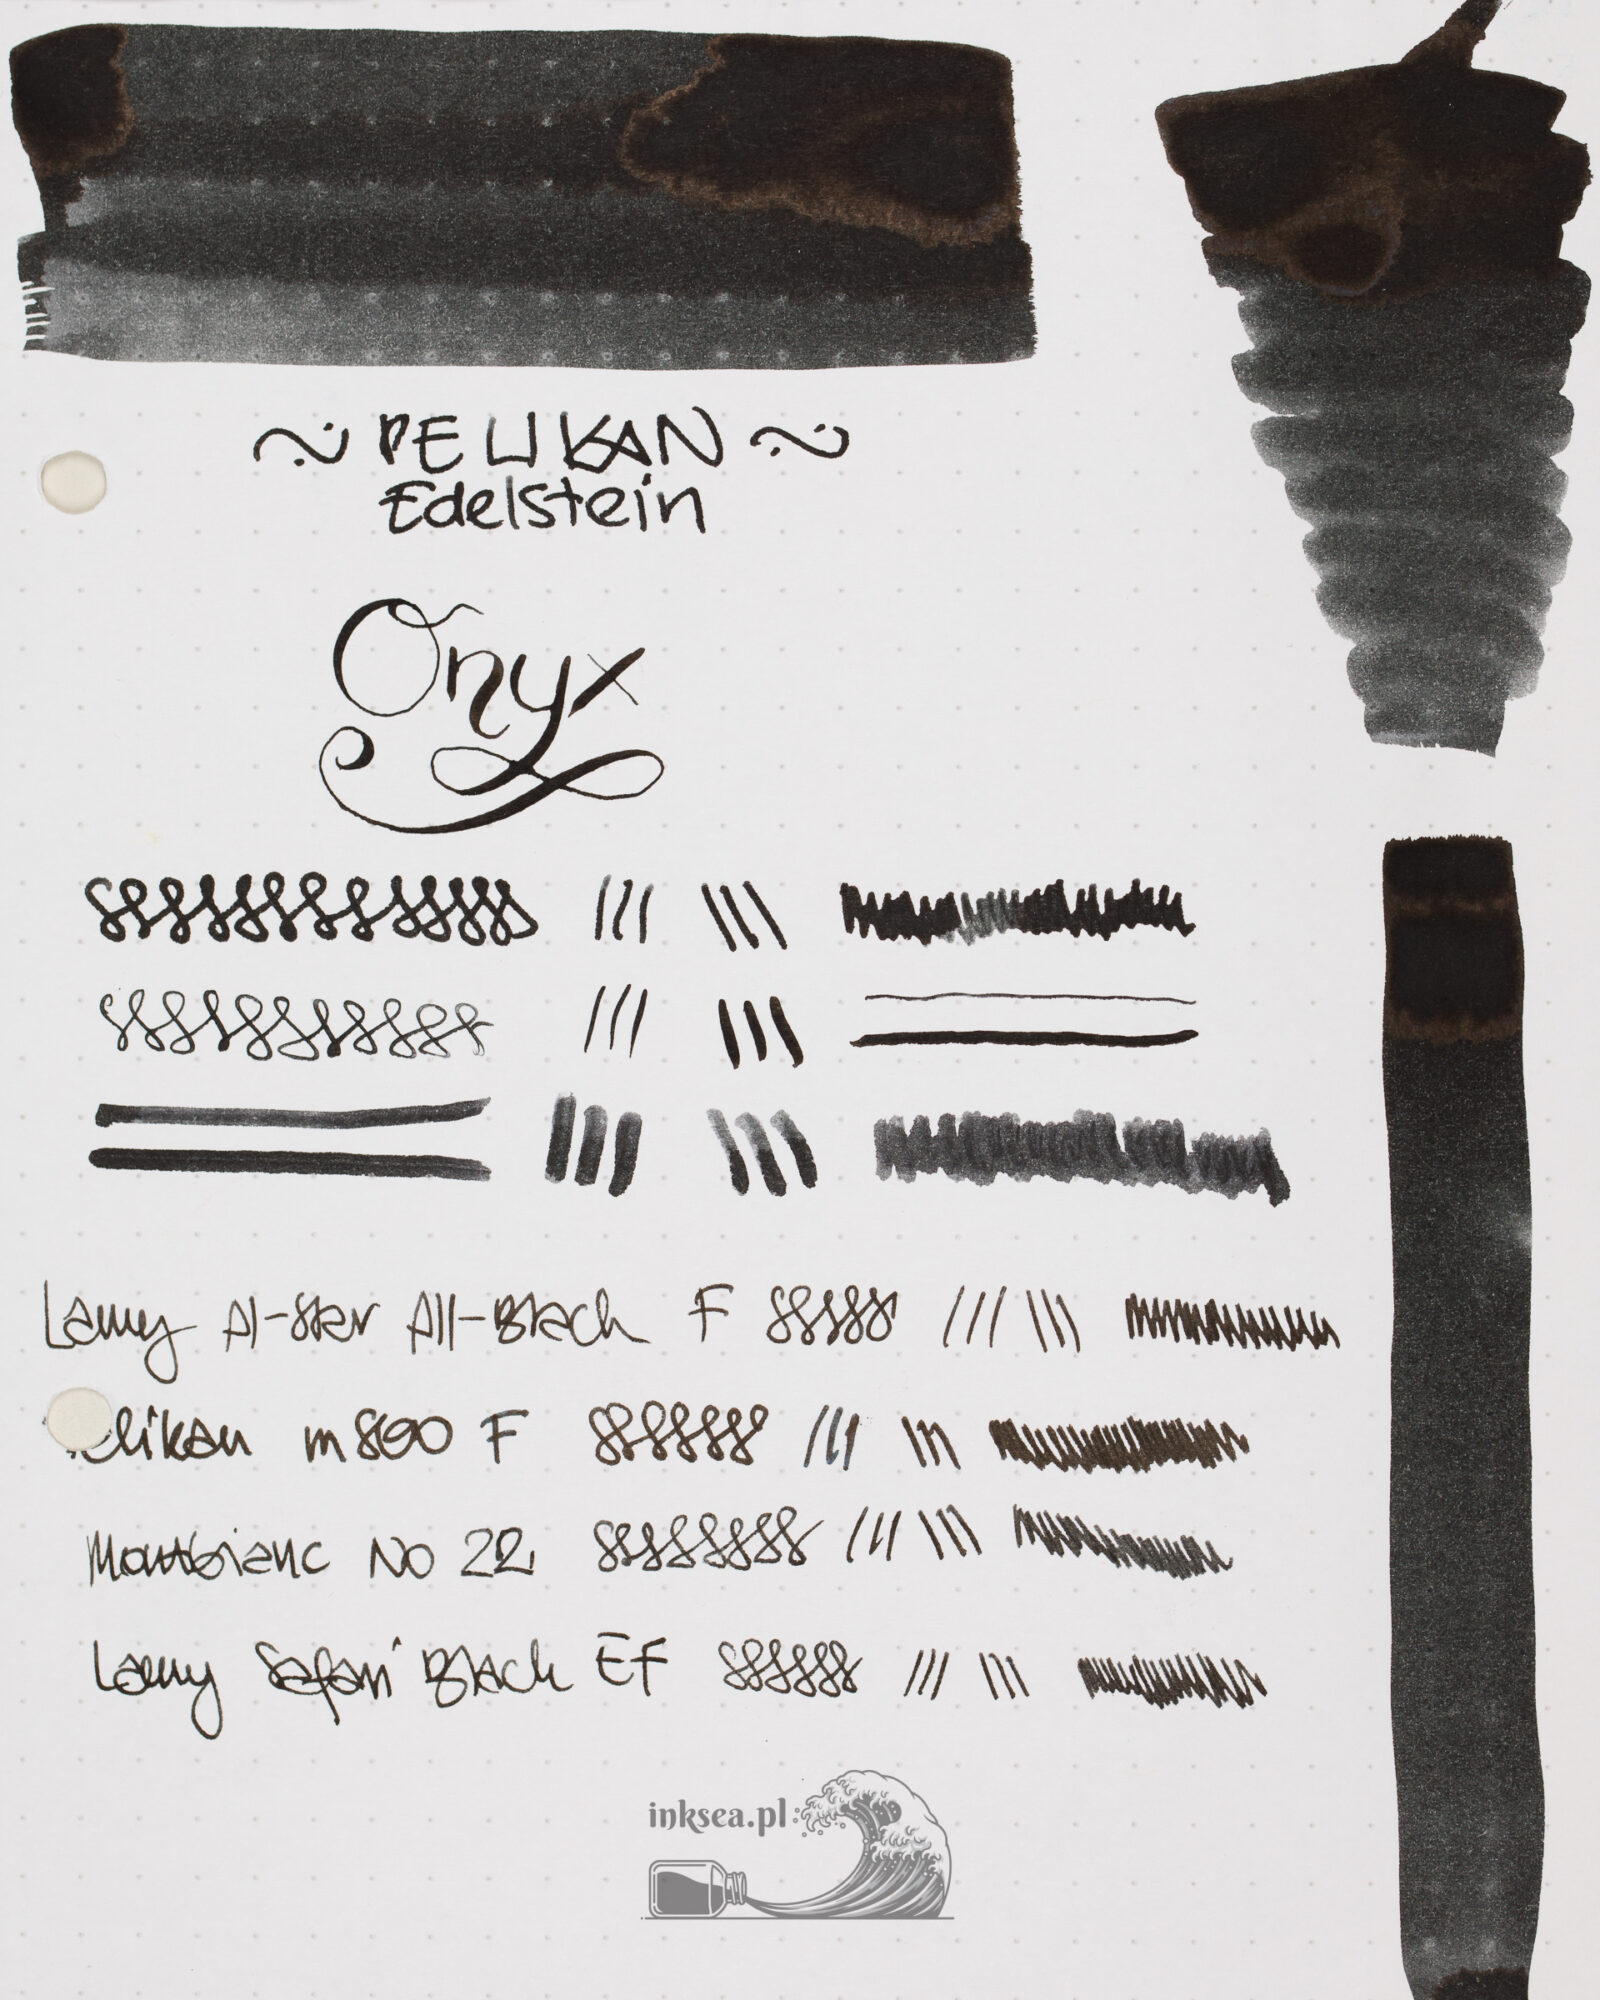 ~ PELIKAN ~
Edelstein
Onyx
Lamy Al-Star All-Black F
Pelikan m800 F
Montblanc No 22
Lamy Safari Black EF
inksea.pl